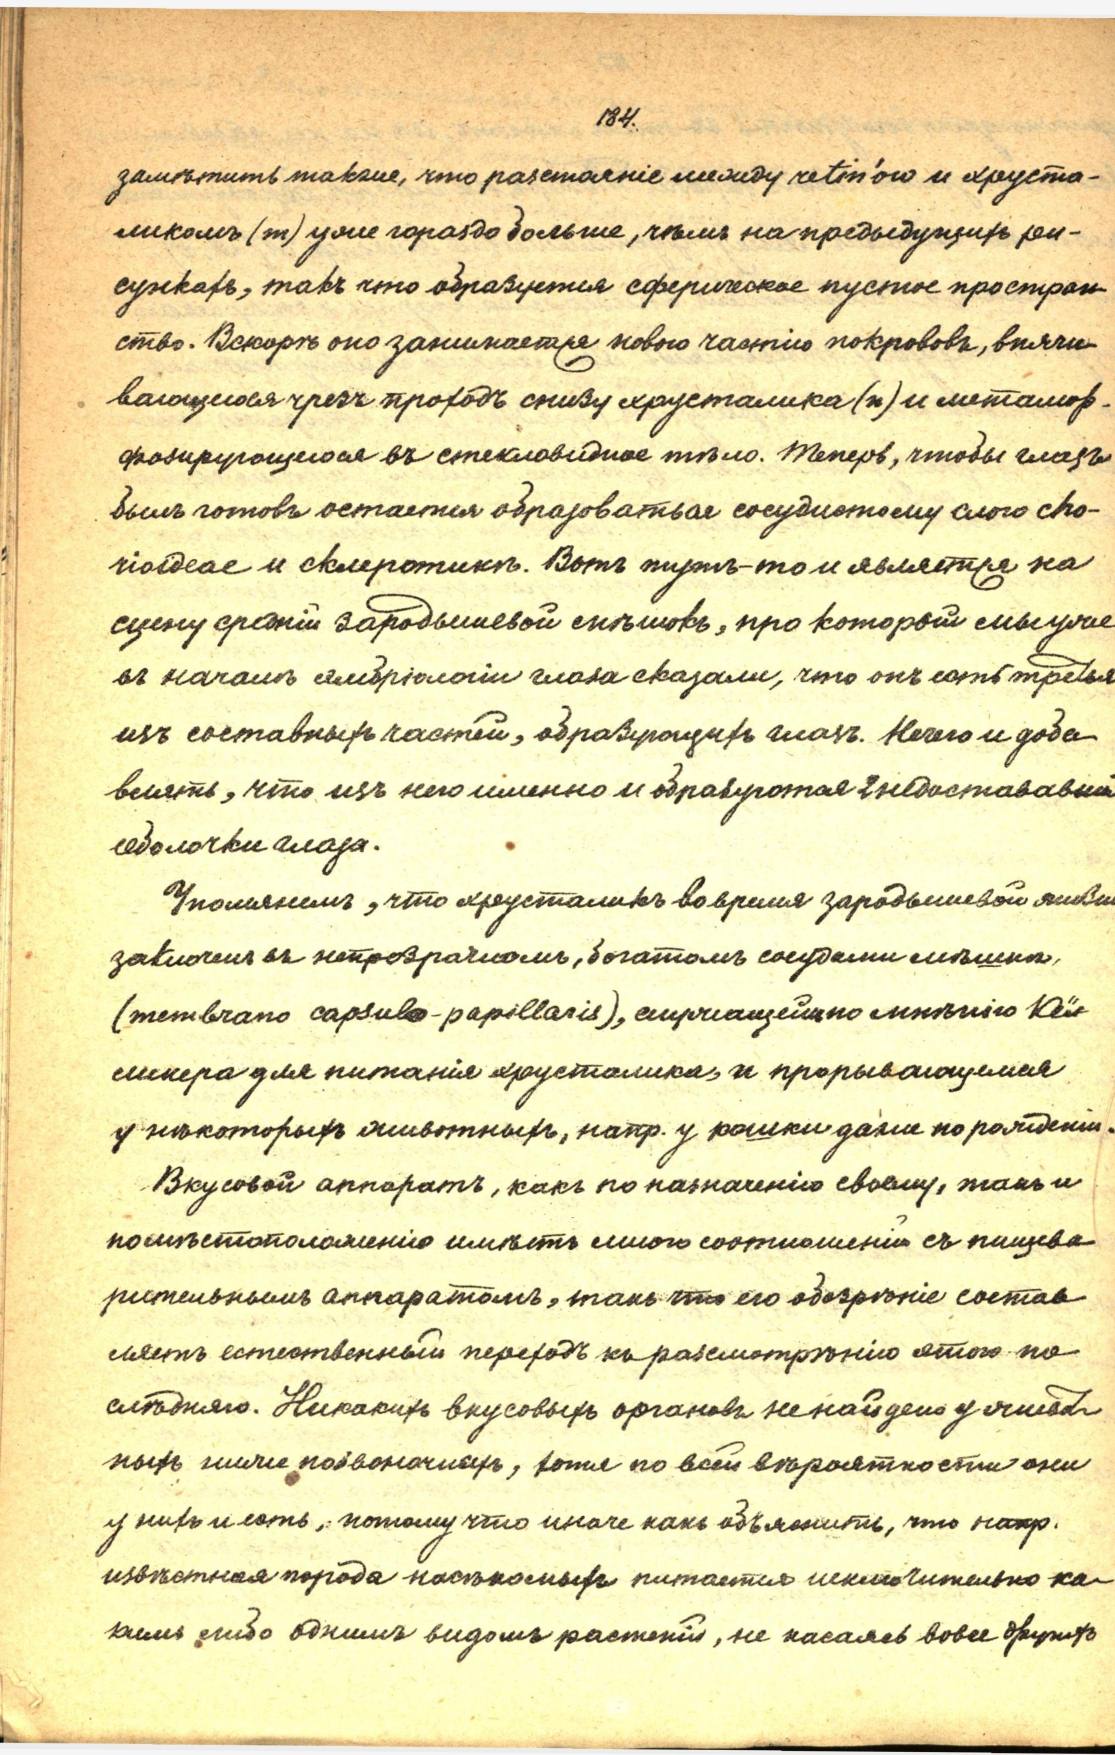 184.
замѣтить также, что разстояніе между retin'ою и хруста-
ликомъ (m) уже гораздо больше, чѣмъ на предыдущихъ ри-
сункахъ, такъ что образуется сферическое пустое простран-
ство. Вскорѣ оно занимается новою частію покрововъ, впячи-
вающеюся чрезъ проходъ снизу хрусталика (n) и метамор-
фозирующеюся въ стекловидное тѣло. Теперь, чтобы глазъ
былъ готовъ остается образоваться сосудистому слою cho-
rioideae и склеротикѣ. Вотъ тутъ-то и является на
сцену средній зародышевой мѣшокъ, про который мы уже
въ началѣ эмбріологіи глаза сказали, что онъ есть третья
изъ составныхъ частей, образующихъ глазъ. Нечего и доба
влять, что изъ него именно и образуются 2 недостававшія
оболочки глаза.
Упомянемъ, что хрусталикъ во время зародышевой жизни
заключенъ въ непрозрачномъ, богатомъ сосудами мѣшкѣ,
(membrano capsulo-papillaris), служащей по мнѣнію Кёл
ликера для питанія хрусталика, и прорывающемся
у нѣкоторыхъ животныхъ, напр. у кошки даже по рожденіи.
Вкусовой аппаратъ, какъ по назначенію своему, такъ и
по мѣстоположенію имѣетъ много соотношеній съ пищева
рительнымъ аппаратомъ, такъ что его обозрѣніе состав
ляетъ естественный переходъ къ разсмотрѣнію этого по
слѣдняго. Никакихъ вкусовыхъ органовъ не найдено у живот
ныхъ ниже позвоночныхъ, хотя по всей вѣроятности они
у нихъ и есть, потому что иначе какъ объяснить, что напр.
извѣстная порода насѣкомыхъ питается исключительно ка-
кимъ либо однимъ видомъ растеній, не касаясь вовсе другихъ